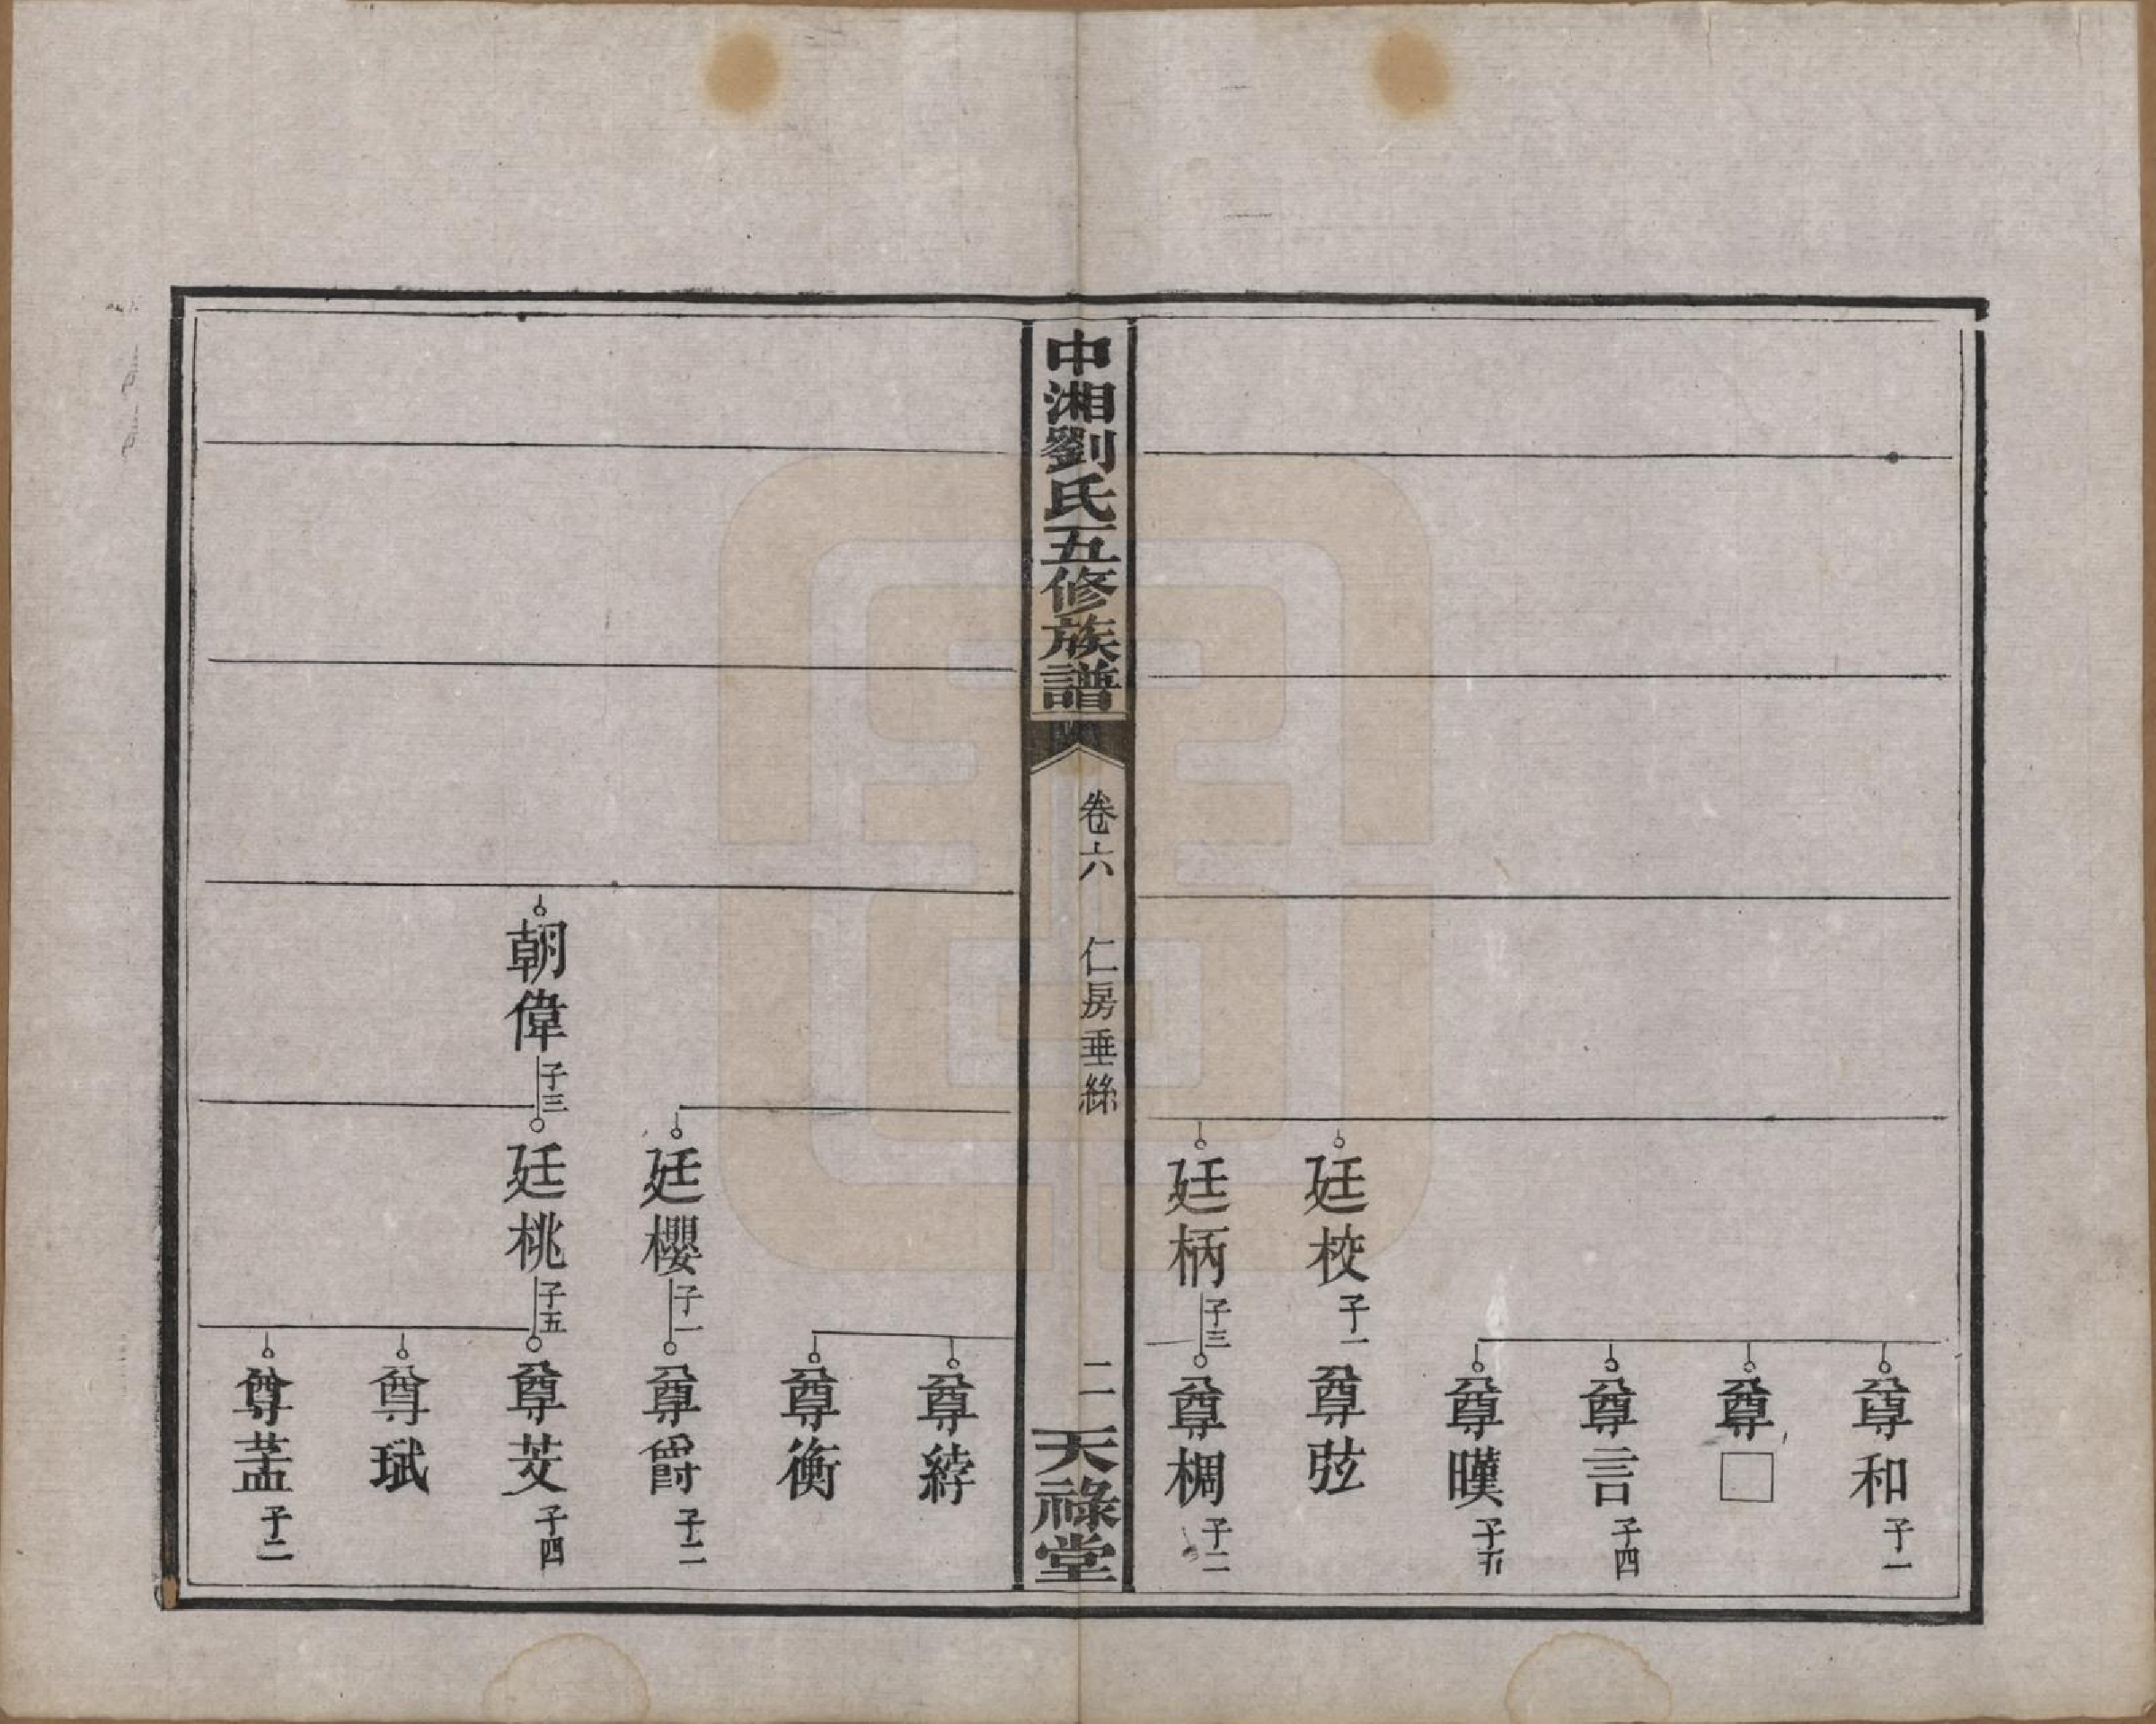 尊和 子一
尊□
尊言 子四
尊暵 子五
廷校 子一
尊弦
廷柄 子三
尊椆 子二
中湘劉氏五修族譜
卷六 仁房垂絲
二
天祿堂
尊綍
尊衡
廷櫻 子一
尊爵 子二
朝偉 子三
廷桃 子五
尊芠 子四
尊珷
尊盖 子二